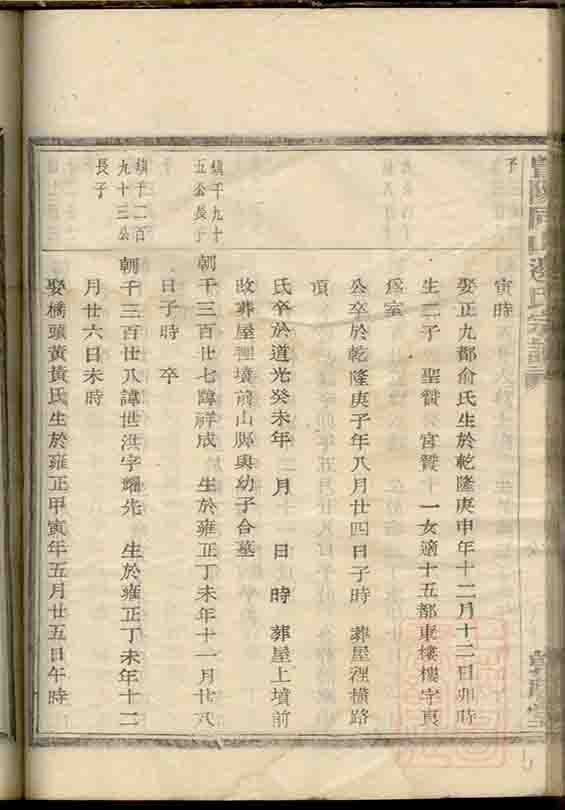 子
寅時
娶正九都俞氏生於乾隆庚申年十二月十二日卯時
生二子 聖贊 宮贊 一女適十五都東樓樓字夷
爲室
公卒於乾隆庚子年八月廿四日子時 葬屋裡橫路
項
氏卒於道光癸未年二月十一日 時 葬屋上墳前
改葬屋裡墳前山腳與幼子合墓
鎮千九十
五公長子
朝千三百廿七諱祥成 生於雍正丁未年十一月廿八
日子時 卒
鎮千一百
九十三公
長子
朝千三百廿八諱世洪字耀先 生於雍正丁未年十二
月廿六日未時
娶橋頭黃黃氏生於雍正甲寅年五月廿五日午時